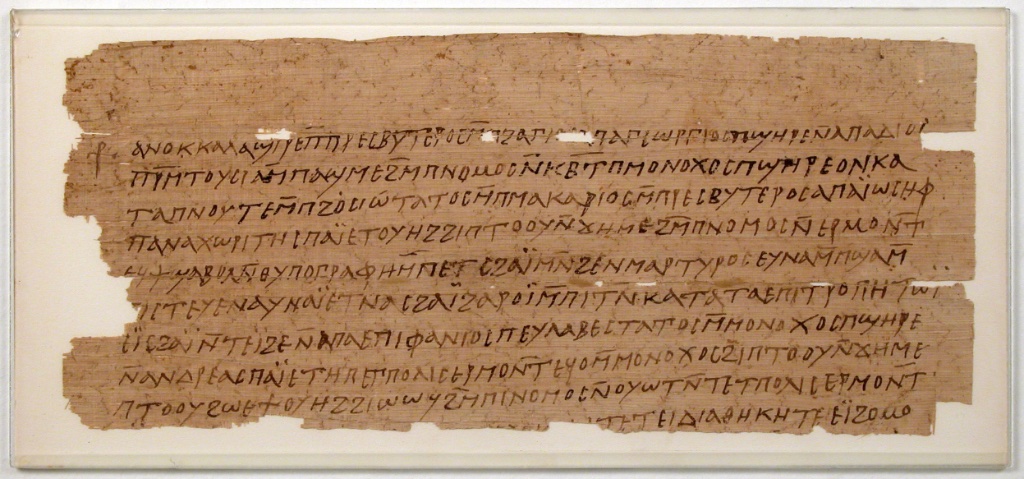 ⳨ ⲁⲛⲟⲕ ⲕⲁⲗⲁϣⲓⲣⲉ ⲡⲡⲣⲉⲥⲃⲩⲧⲉⲣⲟⲥ ⲡϩⲁⲅⲓⲟⲥ ⲁⲡⲁ ⲅⲓⲱⲣⲅⲓⲟⲥ ⲡϣⲏⲣⲉ ⲛⲁⲡⲁ ⲇⲓⲟⲥ
ϩⲙ̄ⲡⲛⲟⲙⲟⲥ ⲛ̄ⲕⲃⲧ ⲡⲙⲟⲛⲟⲭⲟⲥ ⲡϣⲏⲣⲉ ⲟⲛ ⲕⲁ
ⲧⲁ ⲡⲛⲟⲩⲧⲉ ⲙ̄ⲡϩⲟⲥⲓⲱⲧⲁⲧⲟⲥ ⲙ̄ⲡⲙⲁⲕⲁⲣⲓⲟⲥ ⲙ̄ⲡⲣⲉⲥⲃⲩⲧⲉⲣⲟⲥ ⲁⲡⲁ ⲓ̈ⲱⲥⲏⲫ
ⲡⲁⲛⲁⲭⲱⲣⲓⲧⲏⲥ ⲡⲁⲓ̈ ⲉⲧⲟⲩⲏϩ ϩⲓⲡⲧⲟⲟⲩ ⲛ̄ϫⲏⲙⲉ ϩⲙ̄ⲡⲛⲟⲙⲟⲥ ⲛ̄ⲉⲣⲙⲟⲛⲧ̄
ⲛ̄ⲑⲩⲡⲟⲅⲣⲁⲫⲏ ⲙ̄ⲡⲉⲧⲥϩⲁⲓ̈ ⲙⲛ̄ϩⲉⲛⲙⲁⲣⲧⲩⲣⲟⲥ ⲉⲩⲛⲁⲙ̄ⲡϣⲁ ⲙ̄
ⲡⲓⲥⲧⲉⲩⲉ ⲛⲁⲩ ⲛⲁⲓ̈ ⲉⲧⲛⲁⲥϩⲁⲓ̈ ϩⲁⲣⲟⲓ̈ ⲙ̄ⲡⲓⲧⲛ̄ ⲕⲁⲧⲁ ⲧⲁⲉⲡⲓⲧⲣⲟⲡⲏ ⲧⲱⲓ̈
ⲉⲓ̈ⲥϩⲁⲓ̈ ⲛ̄ⲧⲉⲓ̈ϩⲉ ⲛ̄ⲁⲡⲁ ⲉⲡⲓⲫⲁⲛⲓⲟⲥ ⲡⲉⲩⲗⲁⲃⲉⲥⲧⲁⲧⲟⲥ ⲙ̄ⲙⲟⲛⲟⲭⲟⲥ ⲡϣⲏⲣⲉ
ⲛ̄ⲁⲛⲇⲣⲉⲁⲥ ⲡⲁⲓ̈ ⲉⲧⲏⲡ ⲉⲧⲡⲟⲗⲓⲥ ⲉⲣⲙⲟⲛⲧ̄ ⲉϥⲟ ⲙ̄ⲙⲟⲛⲟⲭⲟⲥ ϩⲓⲡⲧⲟⲟⲩ ⲛ̄ϫⲏⲙⲉ
ⲡⲧⲟⲟⲩ ϩⲱ ⲉϯⲟⲩⲏϩ ϩⲓⲱⲱϥ ϩⲙ̄ⲡⲓⲛⲟⲙⲟⲥ ⲛ̄ⲟⲩⲱⲧ ⲛ̄ⲧⲉⲧⲡⲟⲗⲓⲥ ⲉⲣⲙⲟⲛⲧ̄
ⲧⲉⲓⲇⲓⲁⲑⲏⲕⲏ ⲧⲉ ⲉⲓ̈ϩⲟⲙⲟ